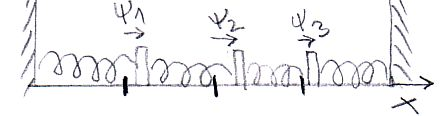 ψ1 ψ2 ψ3
x